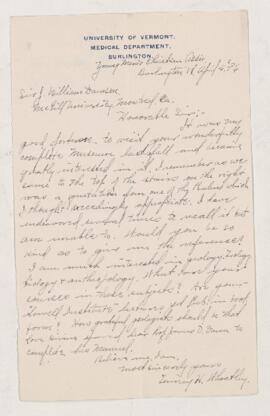 UNIVERSITY OF VERMONT.
MEDICAL DEPARTMENT,
BURLINGTON.
Young Men's Christian Assn
Burlington Vt April
Sir J William Dawson
McGill University, Montreal, Ca.
Honorable Sir;-
It was my
good fortune to visit your wonderfully
complete Museum last fall and became
greatly interested in it. I remember as we
came to the top of the stairs on the right
was a quotation from one of the Psalms which
I thought exceedingly appropriate. I have
endeavored several times to recall it but
am unable to. Would you be so
kind as to give me the reference?
I am much interested in geology, biology
& What are your
courses in these subjects? Are your
Lowell Institute lectures yet Pub. in book
form? How grateful geologists should be that
love divine spared dear Prof. James D. Dana to
complete his Manual.
Believe me, I am,
most sincerely yours
H. Wheatley.